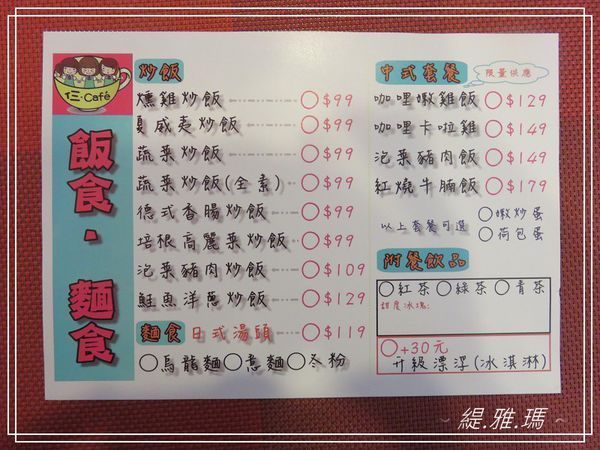 仨·Café
飯食·麵食
炒飯
燻雞炒飯 $99
夏威夷炒飯 $99
蔬菜炒飯 $99
蔬菜炒飯(全素) $99
德式香腸炒飯 $99
培根高麗菜炒飯 $99
泡菜豬肉炒飯 $109
鮭魚洋蔥炒飯 $129
麵食 日式湯頭 $119
烏龍麵 意麵 冬粉
中式套餐 限量供應
咖哩嫩雞飯 $129
咖哩卡啦雞 $149
泡菜豬肉飯 $149
紅燒牛腩飯 $179
以上套餐可選 嫩炒蛋
荷包蛋
附餐飲品
紅茶 綠茶 青茶
甜度冰塊:
+30元
升級漂浮(冰淇淋)
緹.雅.瑪